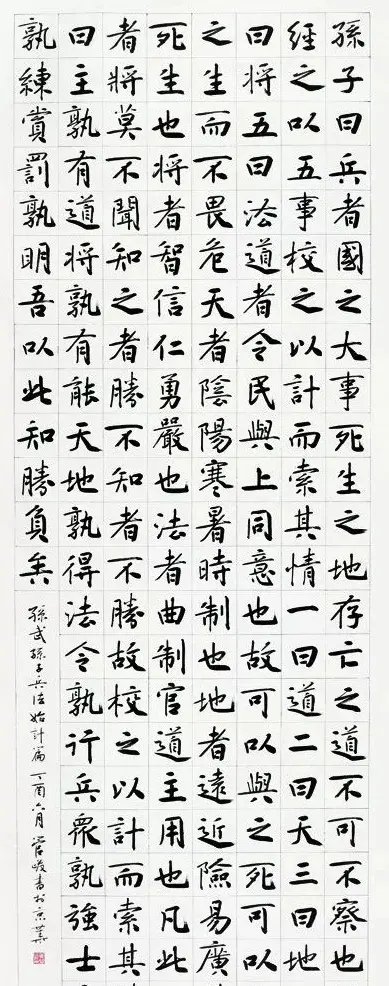 孫子曰兵者國之大事死生之地存亡之道不可不察也
經之以五事校之以計而索其情一曰道二曰天三曰地
曰將五曰法道者令民與上同意也故可以與之死可以
之生而不畏危天者陰陽寒暑時制也地者遠近險易廣
死生也将者智信仁勇嚴也法者曲制官道主用也凡此
者將莫不聞知之者勝不知者不勝故校之以計而索其
曰主孰有道將孰有能天地孰得法令孰行兵眾孰強士
孰練賞罰孰明吾以此知勝負矣
孫武孫子兵法始計篇丁酉六月管峻書於京華